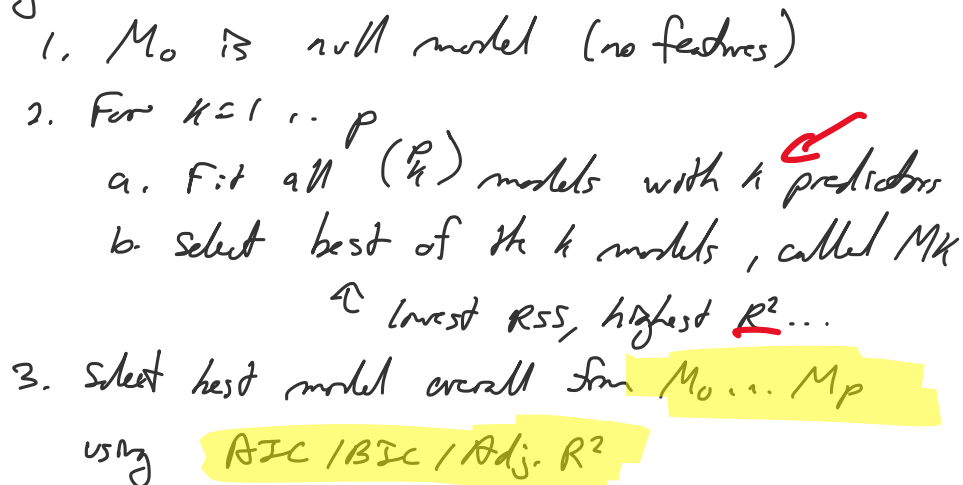 1. M₀ is null model (no features)
2. For k=1 .. p
a. Fit all (p k) models with k predictors
b. Select best of the k models, called Mk
↑ lowest RSS, highest R²...
3. Select best model overall from M₀ ... Mp
using AIC / BIC / Adj. R²